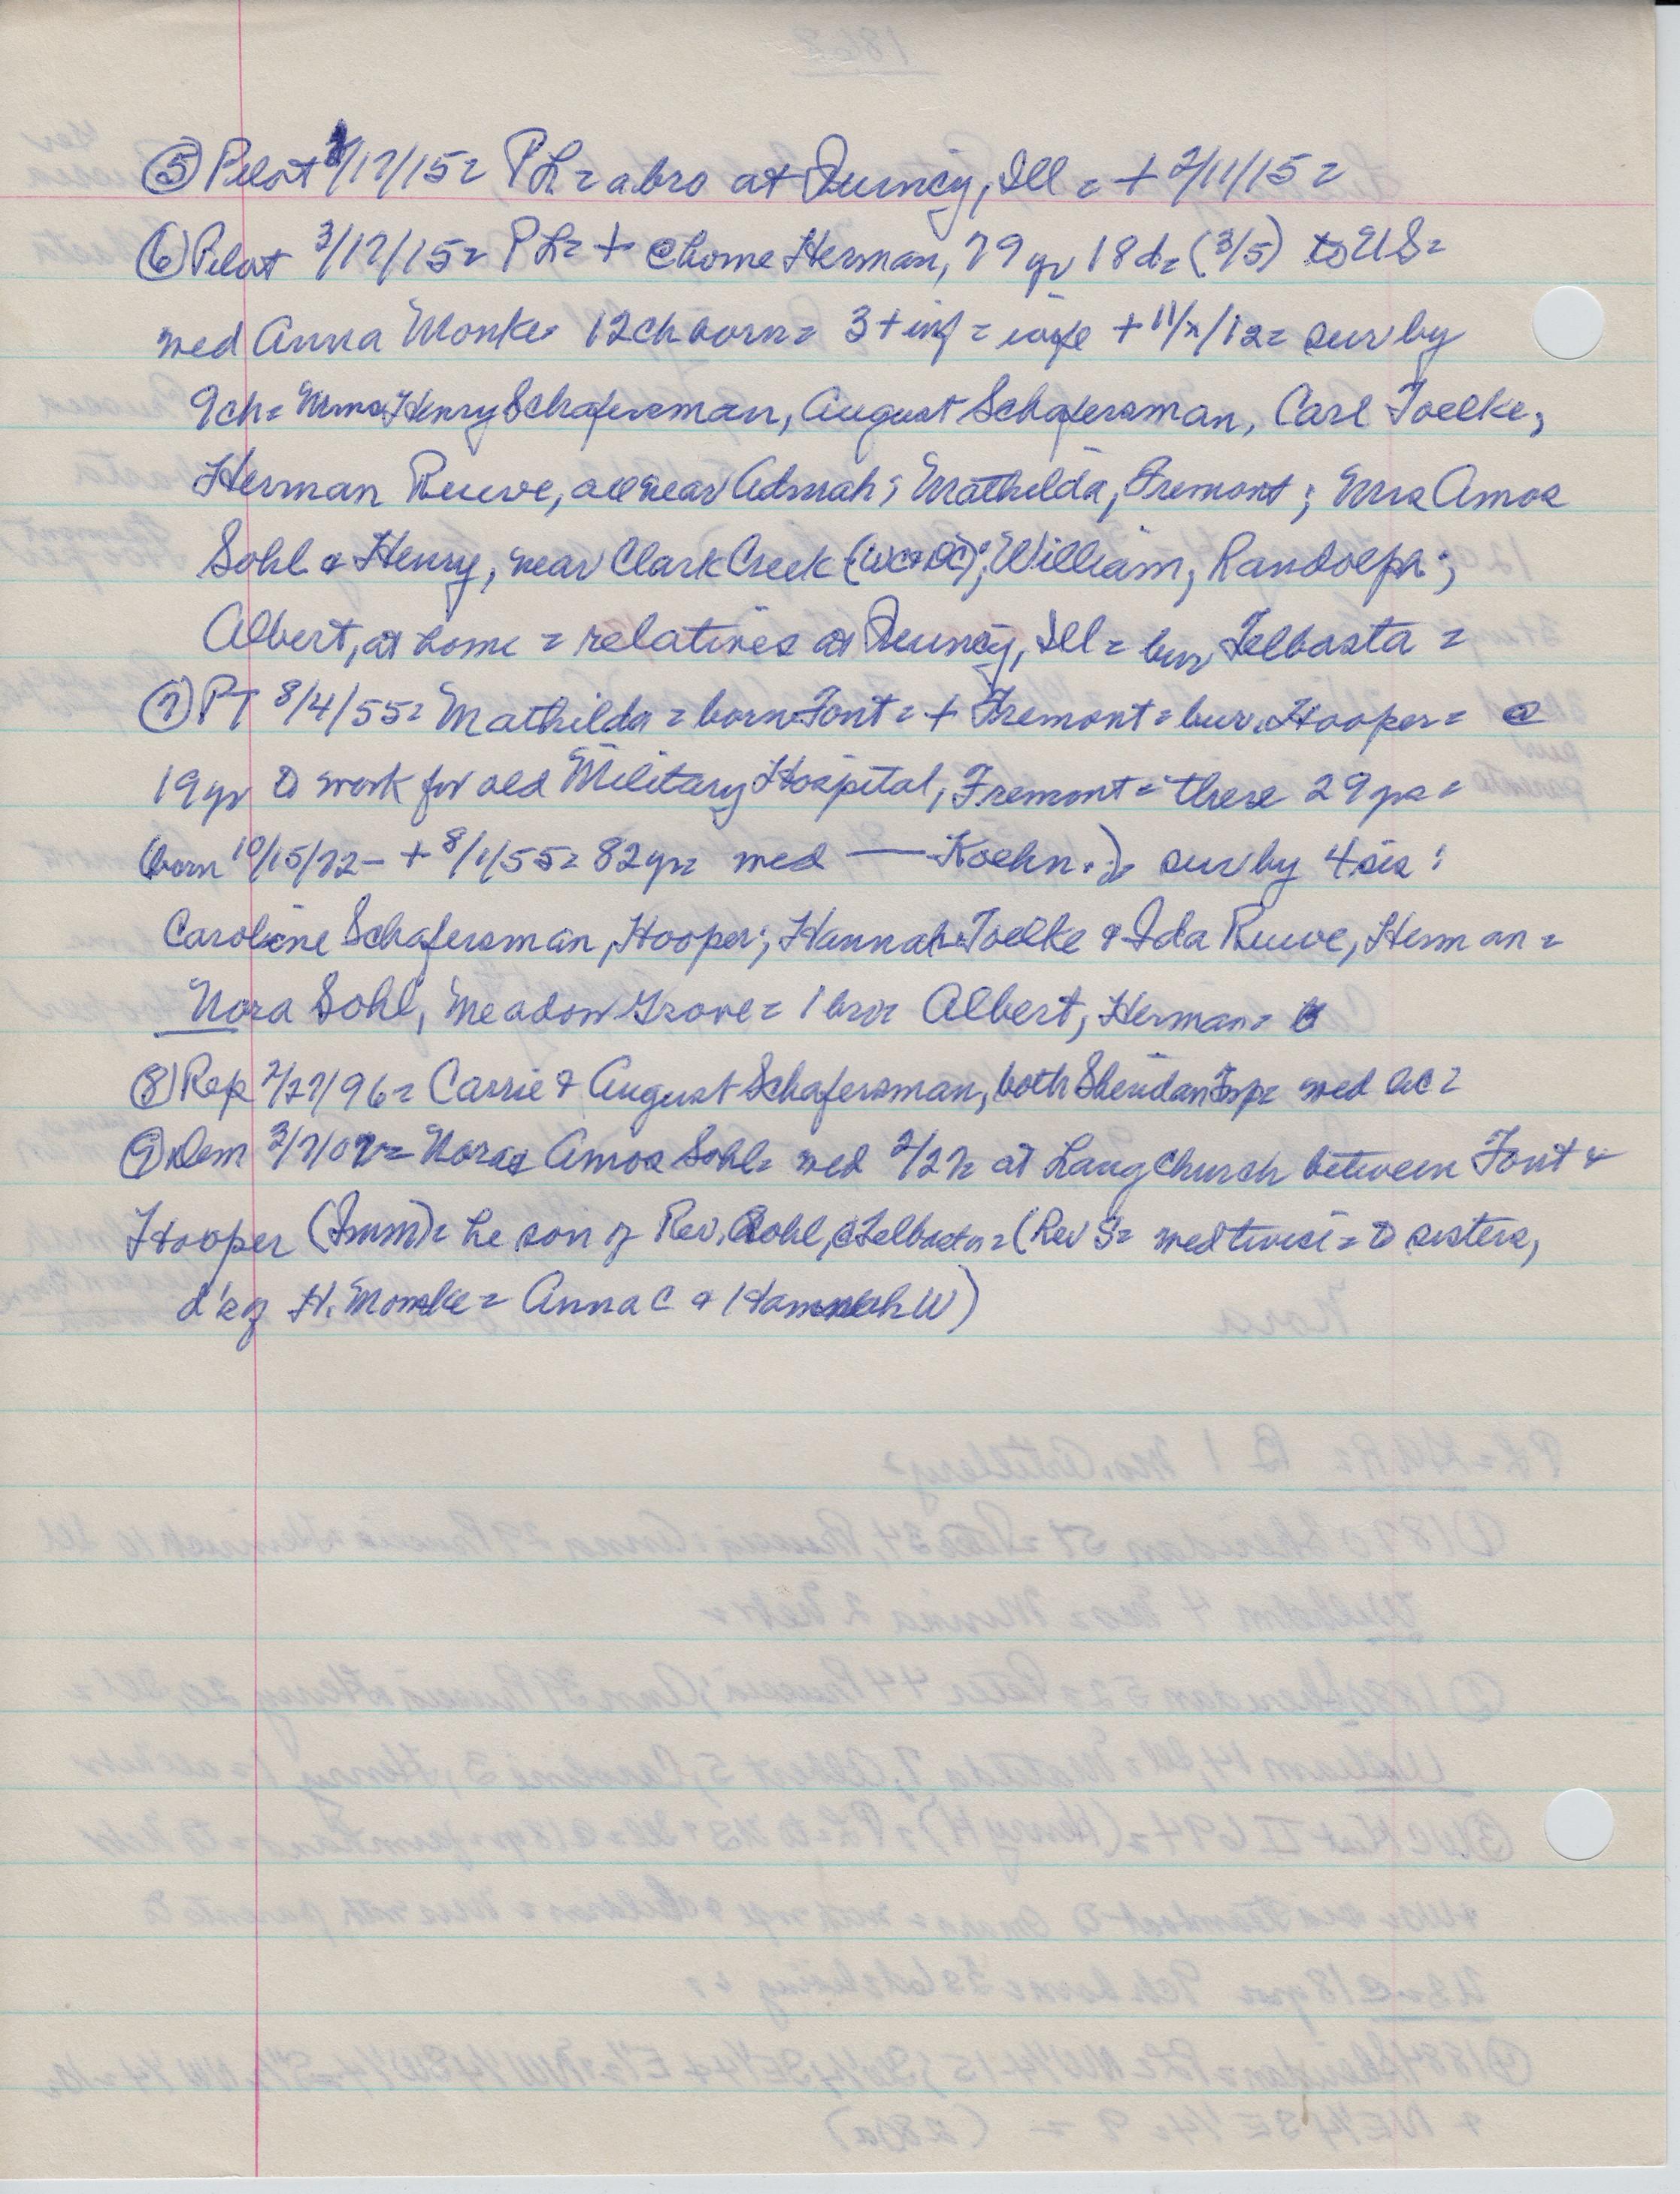 ⑤ Pilot 2/17/15= PL= a bro at Quincy, Ill = + 2/11/15=
⑥ Pilot 3/17/15= PL= + @home Herman, 79 yr 18d= (3/5) to US=
med Anna Monke= 12 ch born= 3 + inf = wife + 11/x/12= sur by
9ch= Mrms Henry Schafersman, August Schafersman, Carl Toelke,
Herman Ruwe, all near Admah; Mathilda, Fremont; Mrs Amos
Sohl & Henry, near Clark Creek (WC & DC); William, Randolph;
Albert, at home = relatives at Quincy, Ill = bur Telbasta =
⑦ PT 8/4/55= Mathilda = born Font = + Fremont = bur. Hooper = @
19 yr to work for old Military Hospital, Fremont = there 29 yrs =
(born 10/15/72 – + 8/1/55= 82 yr= med — Koehn.)= sur by 4 sis:
Caroline Schafersman, Hooper; Hannah Toelke & Ida Ruwe, Herman =
Nora Sohl, Meadow Grove = 1 bro= Albert, Herman=
⑧ Rep 2/27/96= Carrie & August Schafersman, both Sheridan Tsp= med WC=
⑨ Dem 3/7/07= Nora & Amos Sohl= med 2/27= at Lang Church between Font &
Hooper (Imm)= he son of Rev. Sohl, @Telbasta= (Rev S= med twice = to sisters,
d's of H. Monke = Anna C & Hannah W)